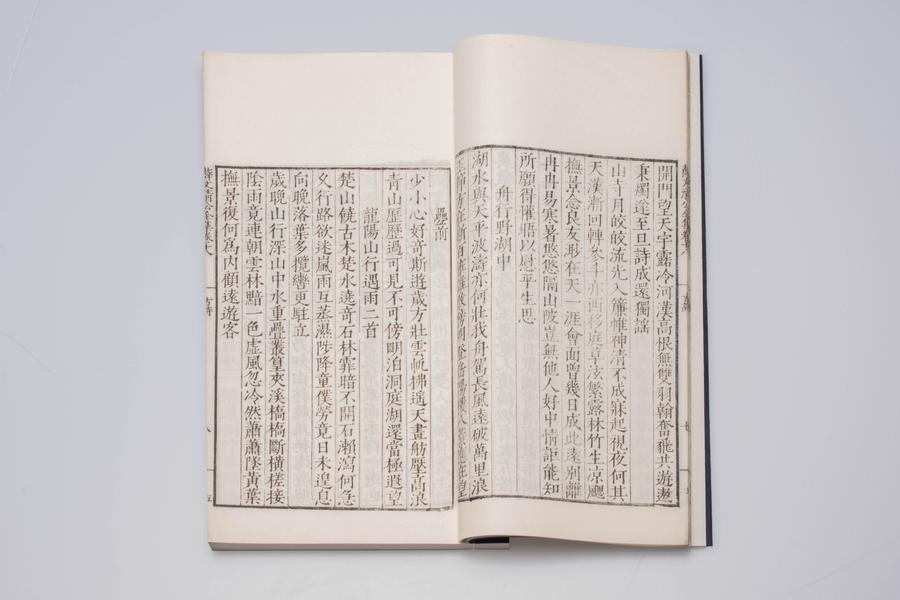 開門望天宇露冷河漢高恨無雙羽翰奮飛共遊遨
秉燭達至旦詩成還獨謡
山寺月皎皎流光入簾帷神清不成寐起視夜何其
天漢漸回轉參斗亦西移庭草泫繁露林竹生凉颸
撫景念良友邈在天一涯會面曾幾日成此遠別離
冉冉易寒暑悠悠隔山陂豈無他人好中情詎能知
所願得摧晤以慰平生思
舟行野湖中
湖水與天平波濤亦何壯我舟駕長風遠破萬里浪
疊前
少小心好奇斯遊歲方壯雲帆拂遥天畫舫壓高浪
青山歷歷過可見不可傍明泊洞庭湖還當極遐望
龍陽山行遇雨二首
楚山饒古木楚水遶奇石林霏暗不開石瀨瀉何急
夊行路欲迷嵐雨互蒸濕陟降童僕勞竟日未遑息
向晚落葉多攬轡更駐立
歲晚山行深山中水重疊叢篁夾溪橋橋斷橫槎接
陰雨竟連朝雲林黯一色虛風忽冷然蕭蕭墜黃葉
撫景復何為內顧遠遊客